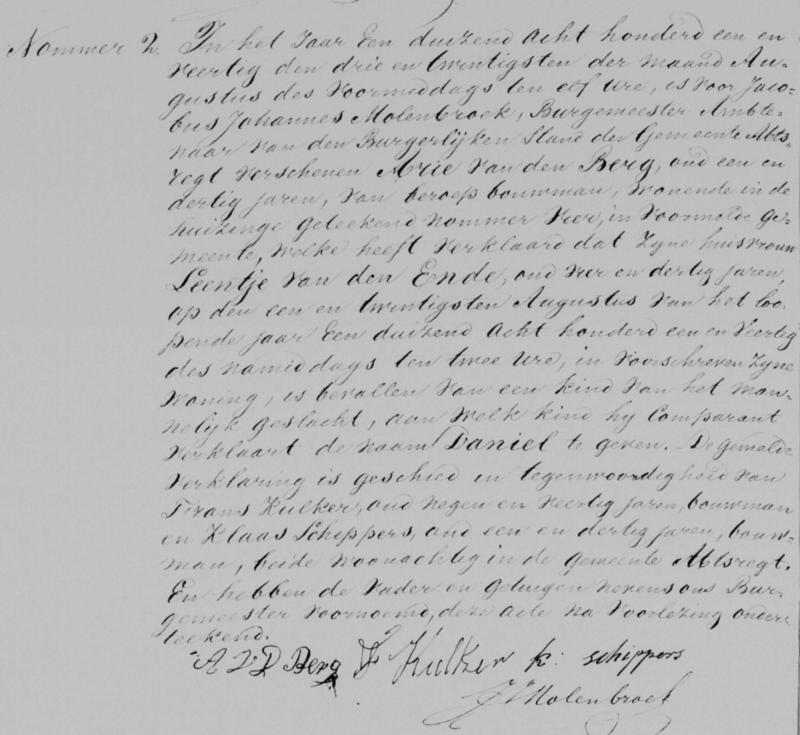 Nommer 2. In het Jaar Een duizend Acht honderd een en
veertig den drie en twintigsten der maand Au-
gustus des voormiddags ten elf ure, is voor Jaco-
bus Johannes Molenbroek, Burgemeester Ambte-
naar van den Burgerlijken Stand der Gemeente Abts-
regt verschenen Arie van den Berg, oud een en
dertig jaren, van beroep bouwman, wonende in de
huizinge geteekend nommer vier, in voormelde Ge-
meente, welke heeft verklaard dat Zyne huisvrouw
Leentje van den Ende, oud vier en dertig jaren,
op den een en twintigsten Augustus van het loo-
pende jaar Een duizend Acht honderd een en veertig
des namiddags ten twee ure, in voorschreven Zyne
woning, is bevallen van een kind van het man-
nelijk geslacht, aan welk kind hy Comparant
verklaart de naam Daniel te geven. - De gemelde
verklaring is geschied in tegenwoordigheid van
Frans Kulker, oud negen en veertig jaren, bouwman
en Klaas Schippers, oud een en dertig jaren, bouw-
man, beide woonachtig in de Gemeente Abtsregt.
En hebben de vader en getuigen nevens ons Bur-
gemeester voornoemd, deze acte na voorlezing onder-
teekend.
A V D Berg F Kulker k: schippers
JJ Molenbroek